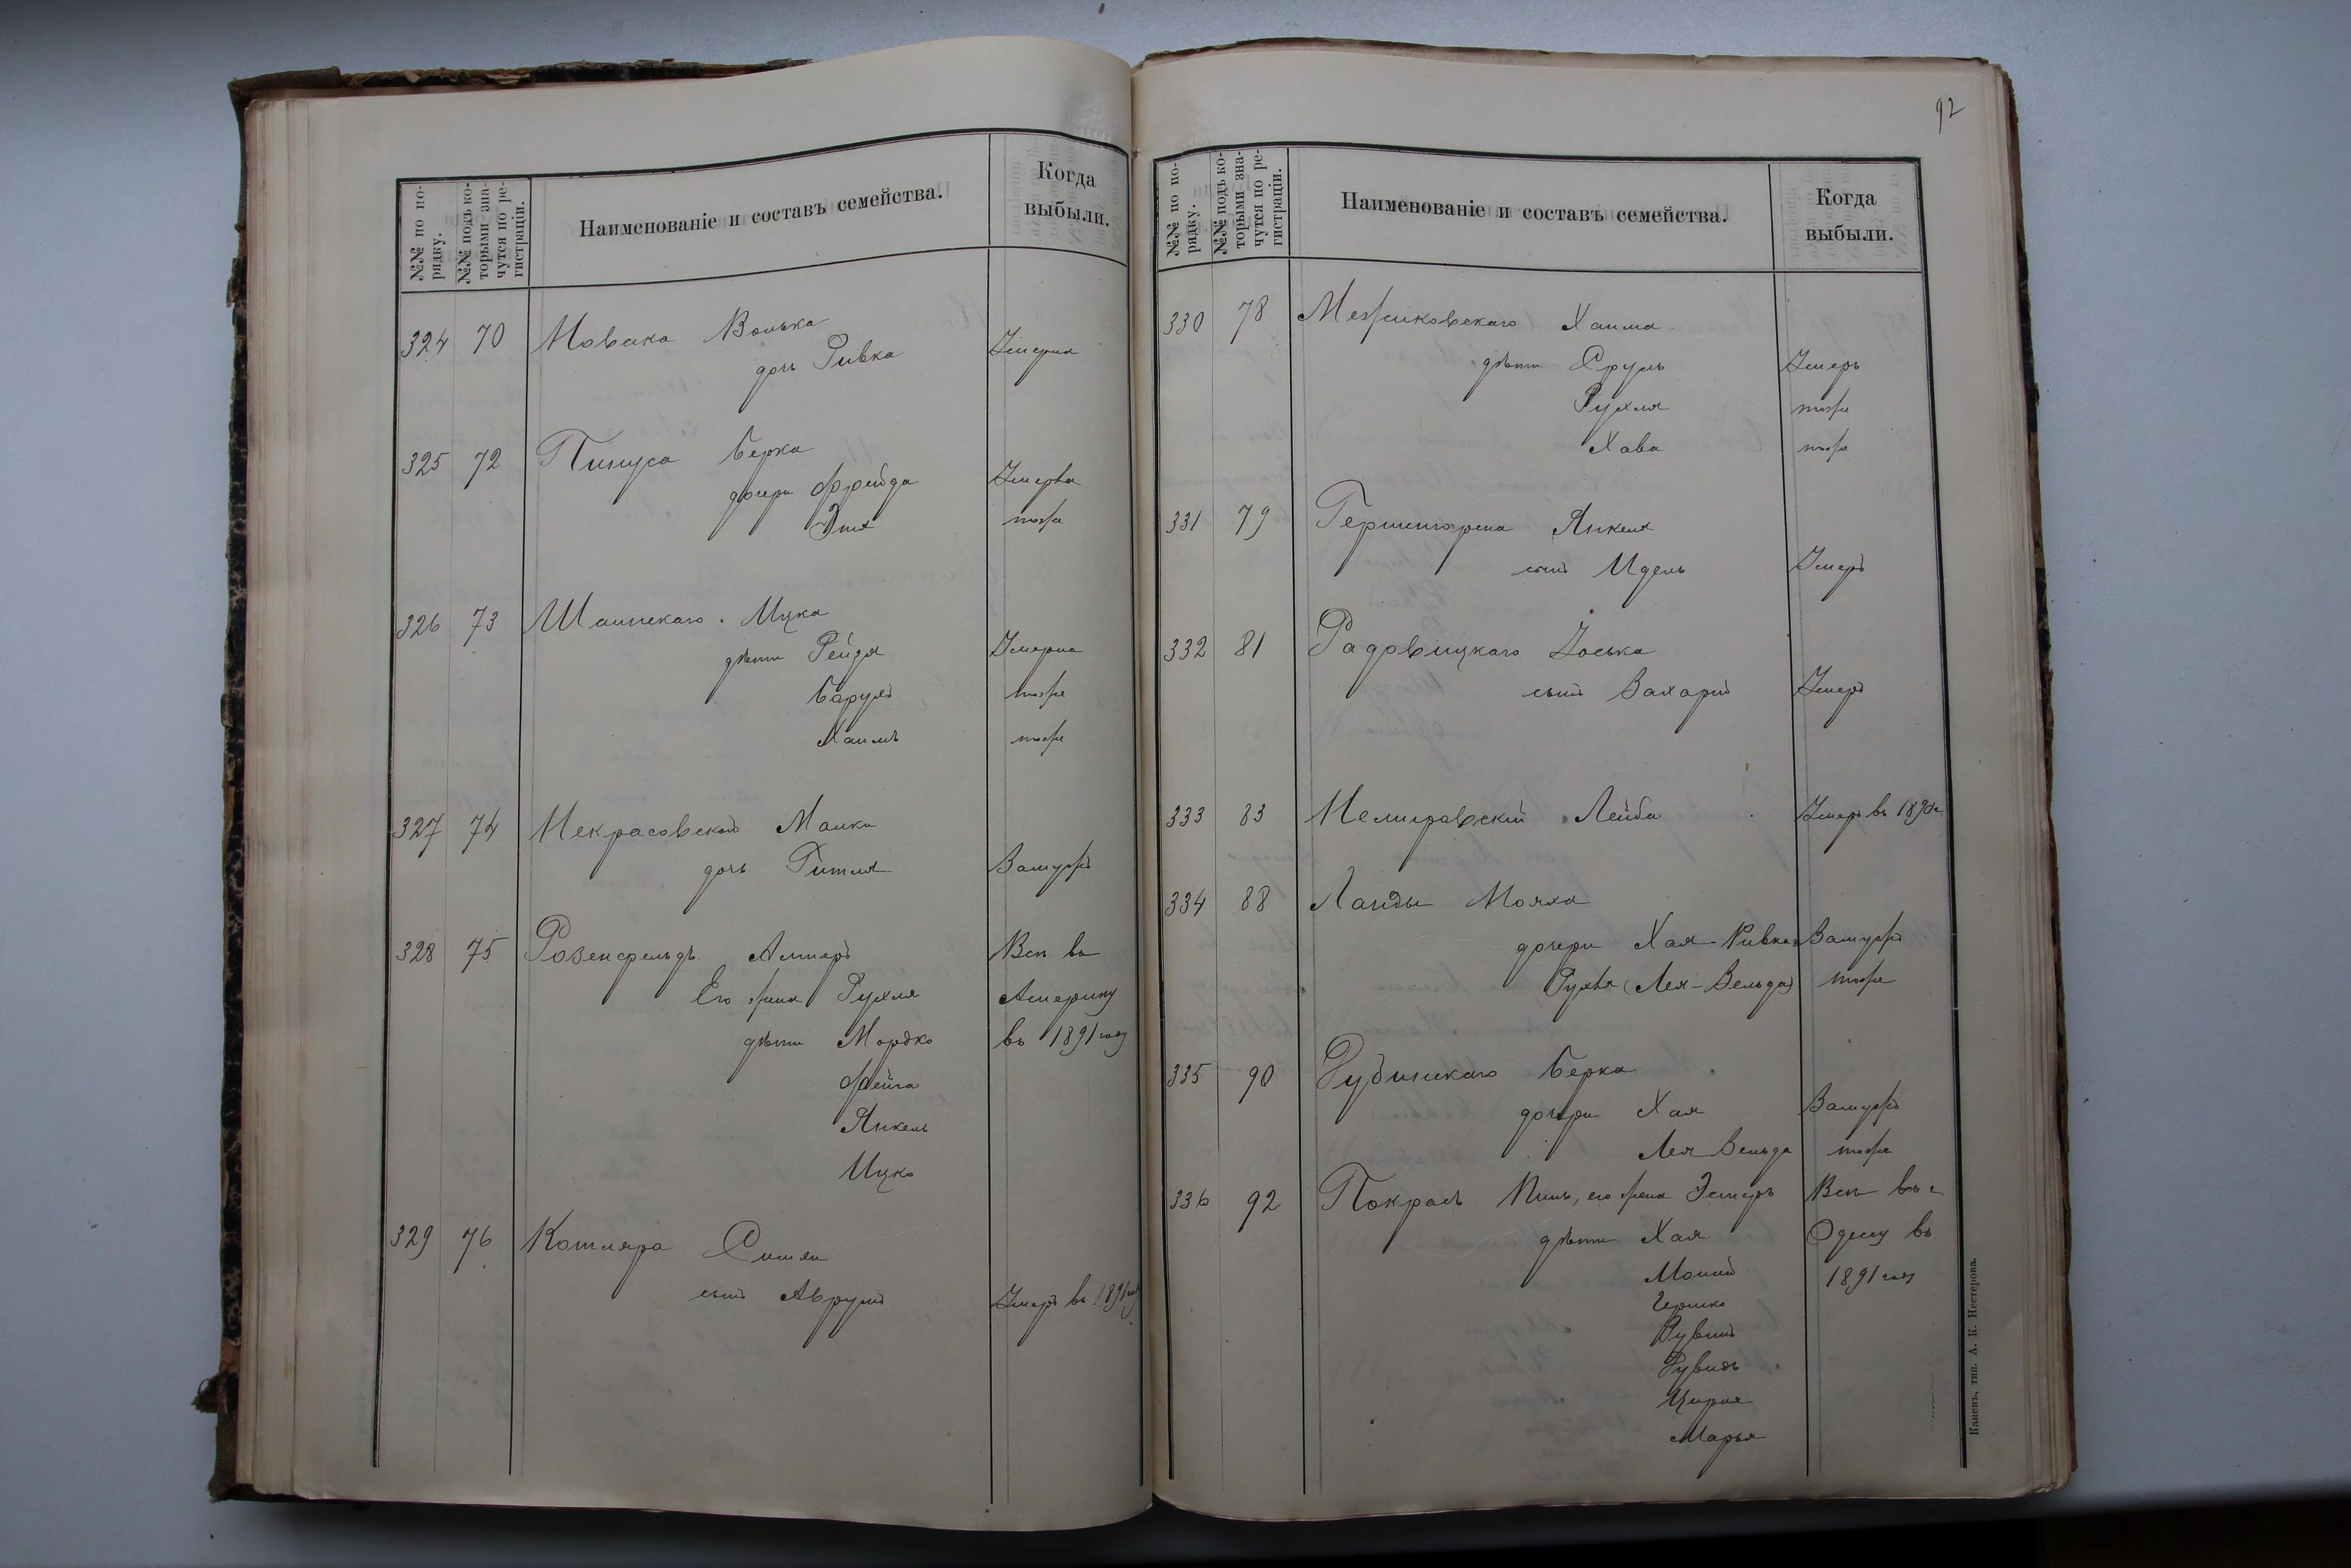 №№ по порядку.
№№ подъ которыми значутся по регистраціи.
Наименованіе и составъ семейства.
Когда выбыли.
324 70 Новака Волька
дочь Ривка Умерла
325 72 Пинуса Берка
дочери Фрейда Умерла
Этя тоже
326 73 Шаинскаго Ицка
дѣти Рейдя Умерла
Барухъ тоже
Хаимъ тоже
327 74 Некрасовской Малки
дочь Гитля Замужъ
328 75 Розенфельдъ Алтеръ Всѣ въ
Его жена Рухля Америку
дѣти Мордко въ 1891 году
Фейга
Янкель
Ицко
329 76 Котляра Симхи
сынъ Аврумъ Умеръ въ 1891 году
92
№№ по порядку.
№№ подъ которыми значутся по регистраціи.
Наименованіе и составъ семейства.
Когда выбыли.
330 78 Межиковскаго Хаима
дѣти Сруль Умеръ
Рухля тоже
Хава тоже
331 79 Гершенгорена Янкеля
сынъ Идель Умеръ
332 81 Радовицкаго Іоська
сынъ Захарій Умеръ
333 83 Немировскій Лейба Умеръ въ 1890 г.
334 88 Ланды
дочери Хая-Ривка Замужъ
Рухля (Лея-Зельда) тоже
335 90 Рубинскаго Берка
дочери Хая Замужъ
Лея Зельда тоже
336 92 Покрасъ Пинь, его жена Эстеръ Всѣ въ г.
дѣти Хая Одессу въ
1891 году
Гершко
Рувинъ
Цирля
Марья
Каневъ, тип. А. К. Нестерова.